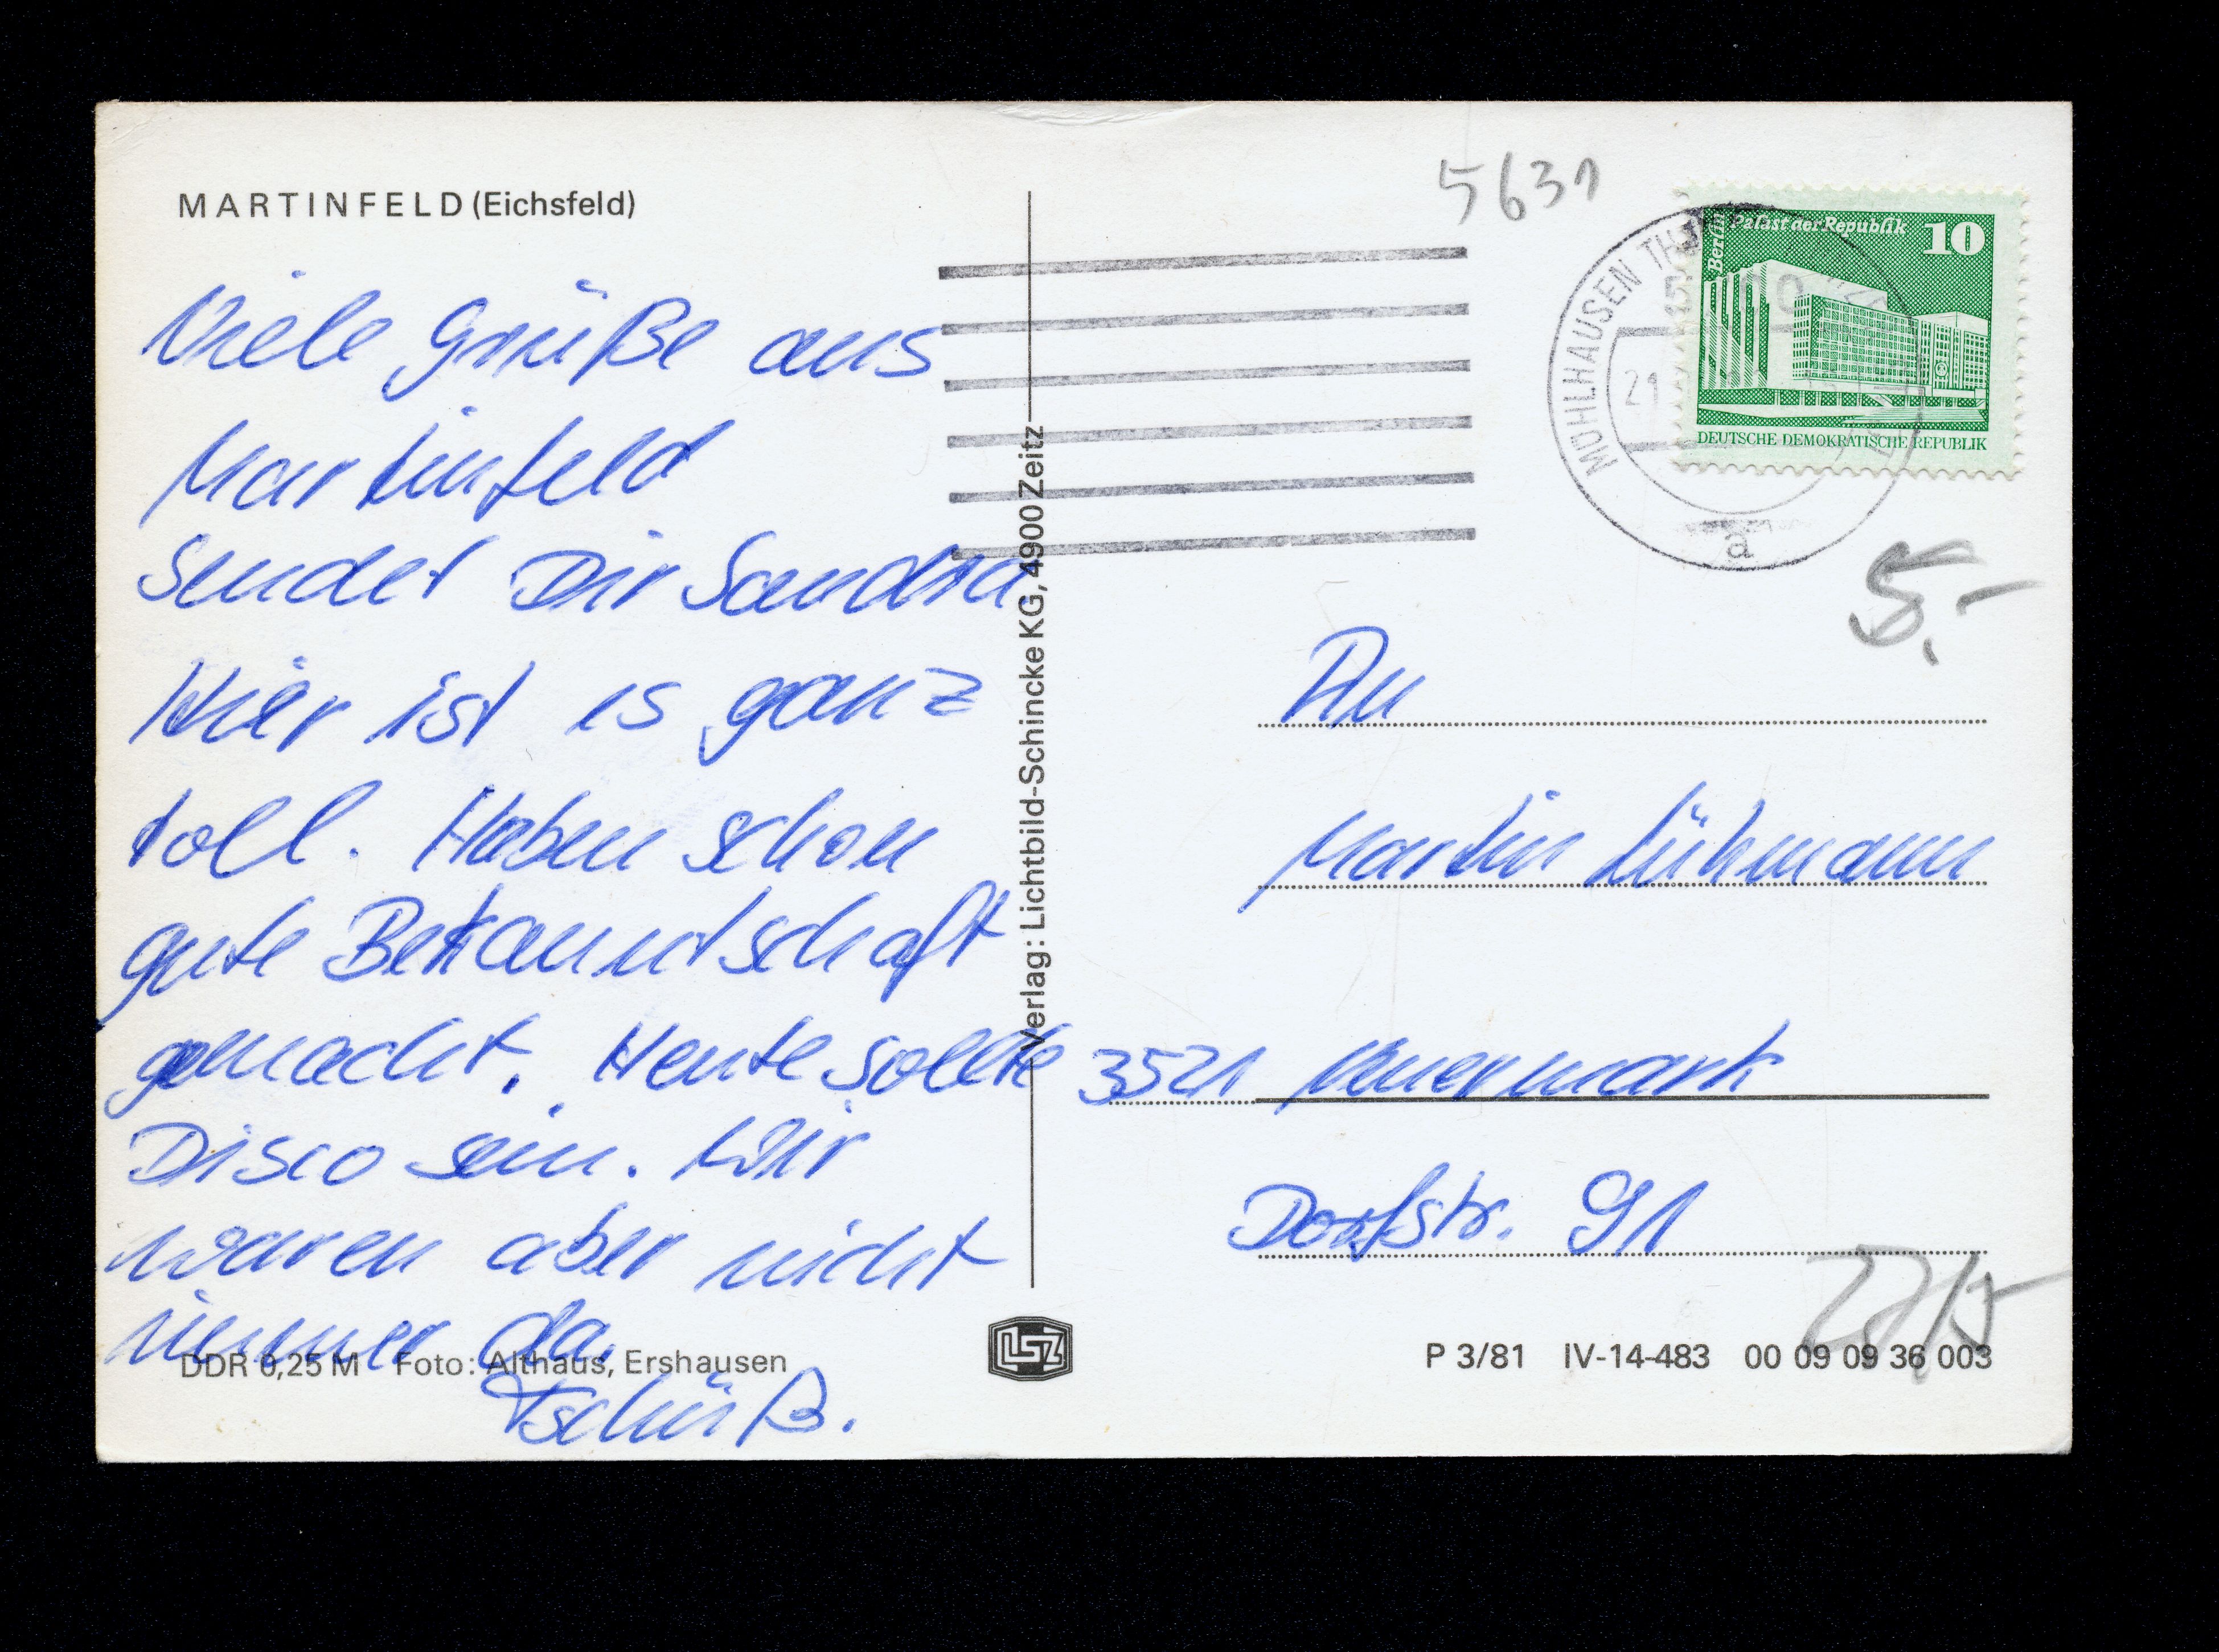 MARTINFELD (Eichsfeld)
Viele Grüße aus
Martinfeld
sendet Dir Sandra.
Hier ist es ganz
toll. Haben schon
gute Bekanntschaft
gemacht. Heute sollte
Disco sein. Wir
waren aber nicht
immer da.
Tschüß.
DDR 0,25 M Foto: Althaus, Ershausen
Verlag: Lichtbild-Schincke KG, 4900 Zeitz
LSZ
5631
MÜHLHAUSEN TH
21
a
Berlin
Palast der Republik
10
DEUTSCHE DEMOKRATISCHE REPUBLIK
5.-
An
Martin Lühmann
3521 Neuermark
Dorfstr. 91
P 3/81 IV-14-483 00 09 09 36 003